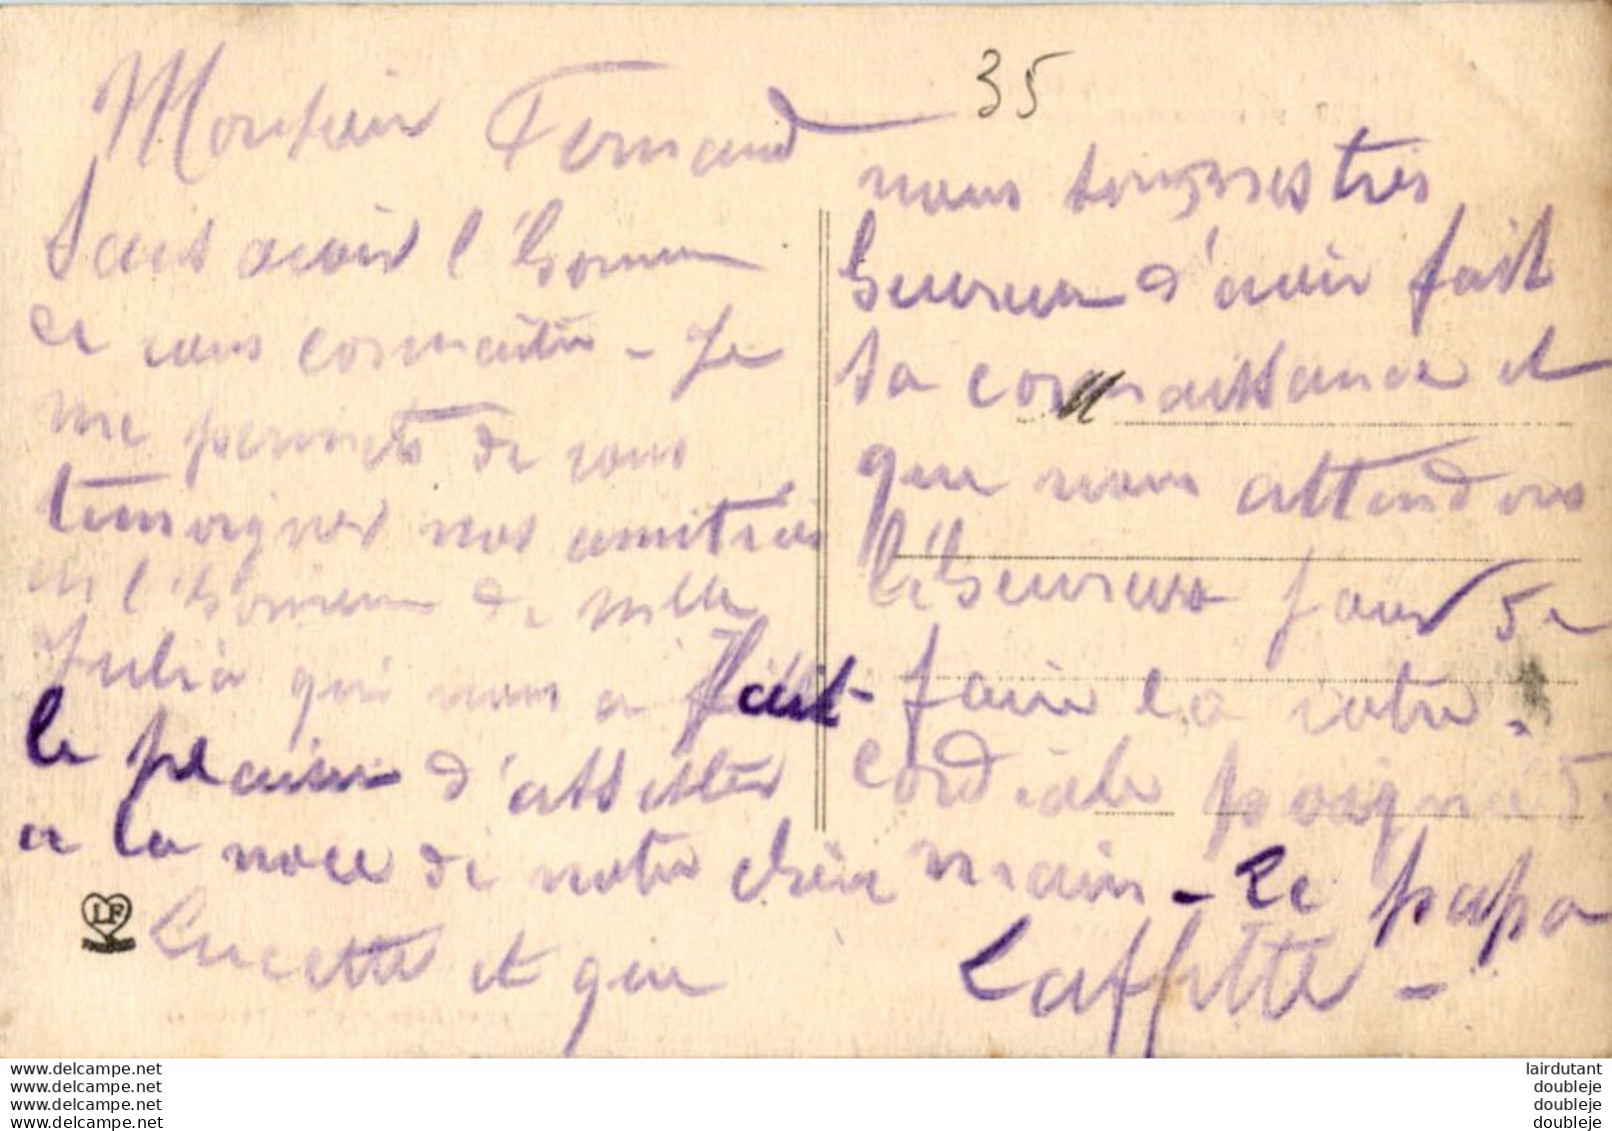 Monsieur Fernand
Sans avoir l'honneur
de vous connaitre - Je
me permets de vous
temoigner nos amitiés
en l'honneur de Mlle
Julia qui nous a fait
le plaisir d'assister
a la noce de notre chère
Lucette et que
35
nous sommes très
heureux d'avoir fait
sa connaissance et
que nous attendons
l'heureux jour de
faire la votre.
cordiale poignée de
main - Le papa
Laffitte -
LF
www.delcampe.net
www.delcampe.net
www.delcampe.net
www.delcampe.net
lairdutant
doubleje
doubleje
doubleje